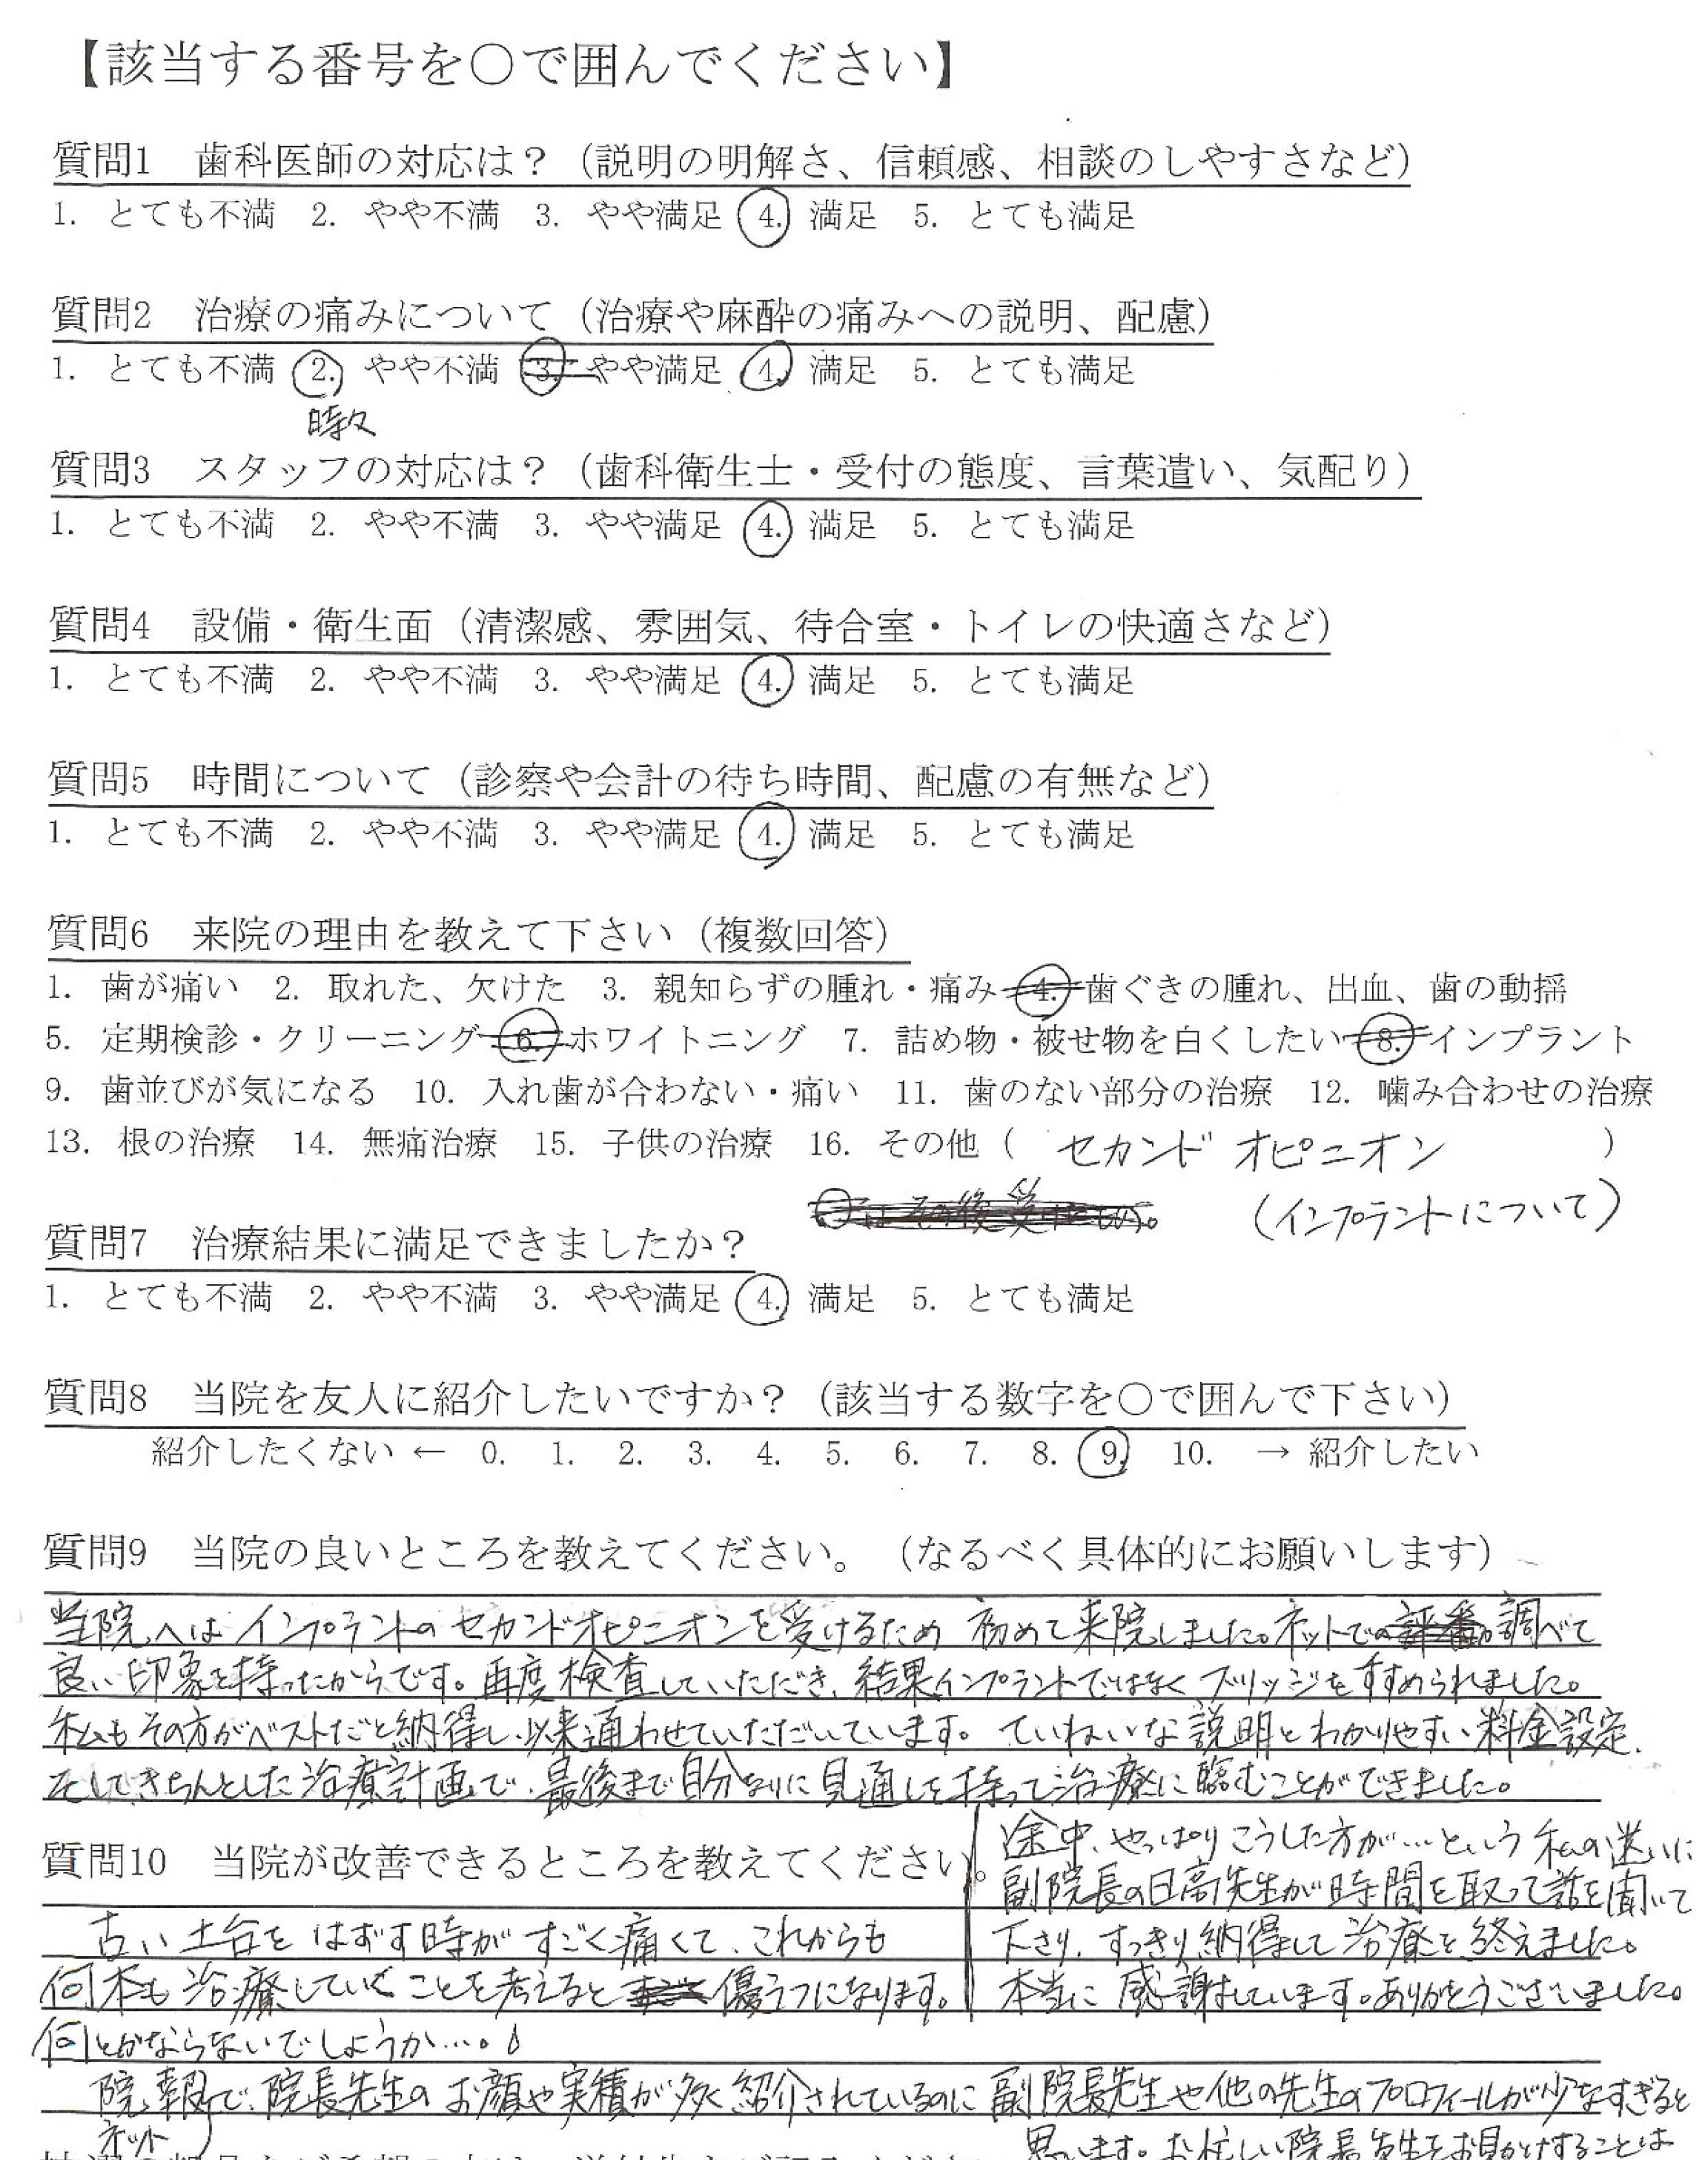 【該当する番号を○で囲んでください】
質問1　歯科医師の対応は？（説明の明解さ、信頼感、相談のしやすさなど）
1. とても不満　2. やや不満　3. やや満足　4. 満足　5. とても満足
質問2　治療の痛みについて（治療や麻酔の痛みへの説明、配慮）
1. とても不満　2. やや不満　3. やや満足　4. 満足　5. とても満足
時々
質問3　スタッフの対応は？（歯科衛生士・受付の態度、言葉遣い、気配り）
1. とても不満　2. やや不満　3. やや満足　4. 満足　5. とても満足
質問4　設備・衛生面（清潔感、雰囲気、待合室・トイレの快適さなど）
1. とても不満　2. やや不満　3. やや満足　4. 満足　5. とても満足
質問5　時間について（診察や会計の待ち時間、配慮の有無など）
1. とても不満　2. やや不満　3. やや満足　4. 満足　5. とても満足
質問6　来院の理由を教えて下さい（複数回答）
1. 歯が痛い　2. 取れた、欠けた　3. 親知らずの腫れ・痛み　4. 歯ぐきの腫れ、出血、歯の動揺
5. 定期検診・クリーニング　6. ホワイトニング　7. 詰め物・被せ物を白くしたい　8. インプラント
9. 歯並びが気になる　10. 入れ歯が合わない・痛い　11. 歯のない部分の治療　12. 噛み合わせの治療
13. 根の治療　14. 無痛治療　15. 子供の治療　16. その他（ セカンド オピニオン ）
（インプラントについて）
質問7　治療結果に満足できましたか？
1. とても不満　2. やや不満　3. やや満足　4. 満足　5. とても満足
質問8　当院を友人に紹介したいですか？（該当する数字を○で囲んで下さい）
紹介したくない ← 0. 1. 2. 3. 4. 5. 6. 7. 8. 9. 10. → 紹介したい
質問9　当院の良いところを教えてください。（なるべく具体的にお願いします）
当院へは インプラントの セカンドオピニオンを受けるため 初めて来院しました。ネットで調べて
良い印象を持ったからです。再度検査していただき、結果インプラントではなく ブリッジをすすめられました。
私もその方がベストだと納得し、以来通わせていただいています。ていねいな説明とわかりやすい料金設定、
そしてきちんとした治療計画で、最後まで自分なりに見通しを持って治療に臨むことができました。
途中、やっぱりこうした方が…という私の迷いに
副院長の日高先生が時間を取って話を聞いて
下さり、すっきり納得して治療を終えました。
本当に感謝しています。ありがとうございました。
質問10　当院が改善できるところを教えてください。
古い土台をはずす時がすごく痛くて、これからも
何本も治療していくことを考えると憂うつになります。
何とかならないでしょうか…。
院報で、院長先生のお顔や実績が多く紹介されているのに副院長先生や他の先生のプロフィールが少なすぎると
ネット
思います。お忙しい院長先生をお見かけすることは